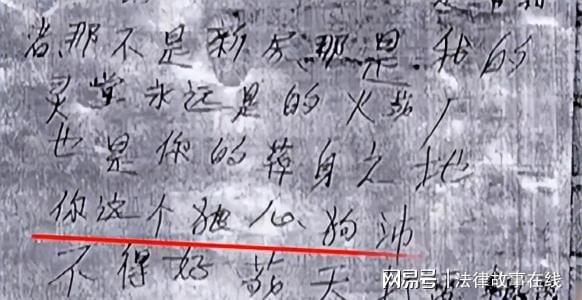 者、那不是新房那是我的
灵堂永远是的火葬厂
也是你的葬身之地
你这个狼心狗沛
不得好葬天
网易号 | 法律故事在线